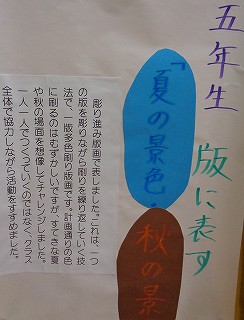 五年生
版に表す
「夏の景色・
秋の景
彫り進み版画で表しました。これは、一つ
の版を彫りながら刷りを繰り返していく技
法で、一版多色刷り版画です。計画通りの色
に刷るのはむずかしいですが、すてきな夏
や秋の場面を想像してチャレンジしました。
一人一人でつくっていくのではなく、クラス
全体で協力しながら活動をすすめました。